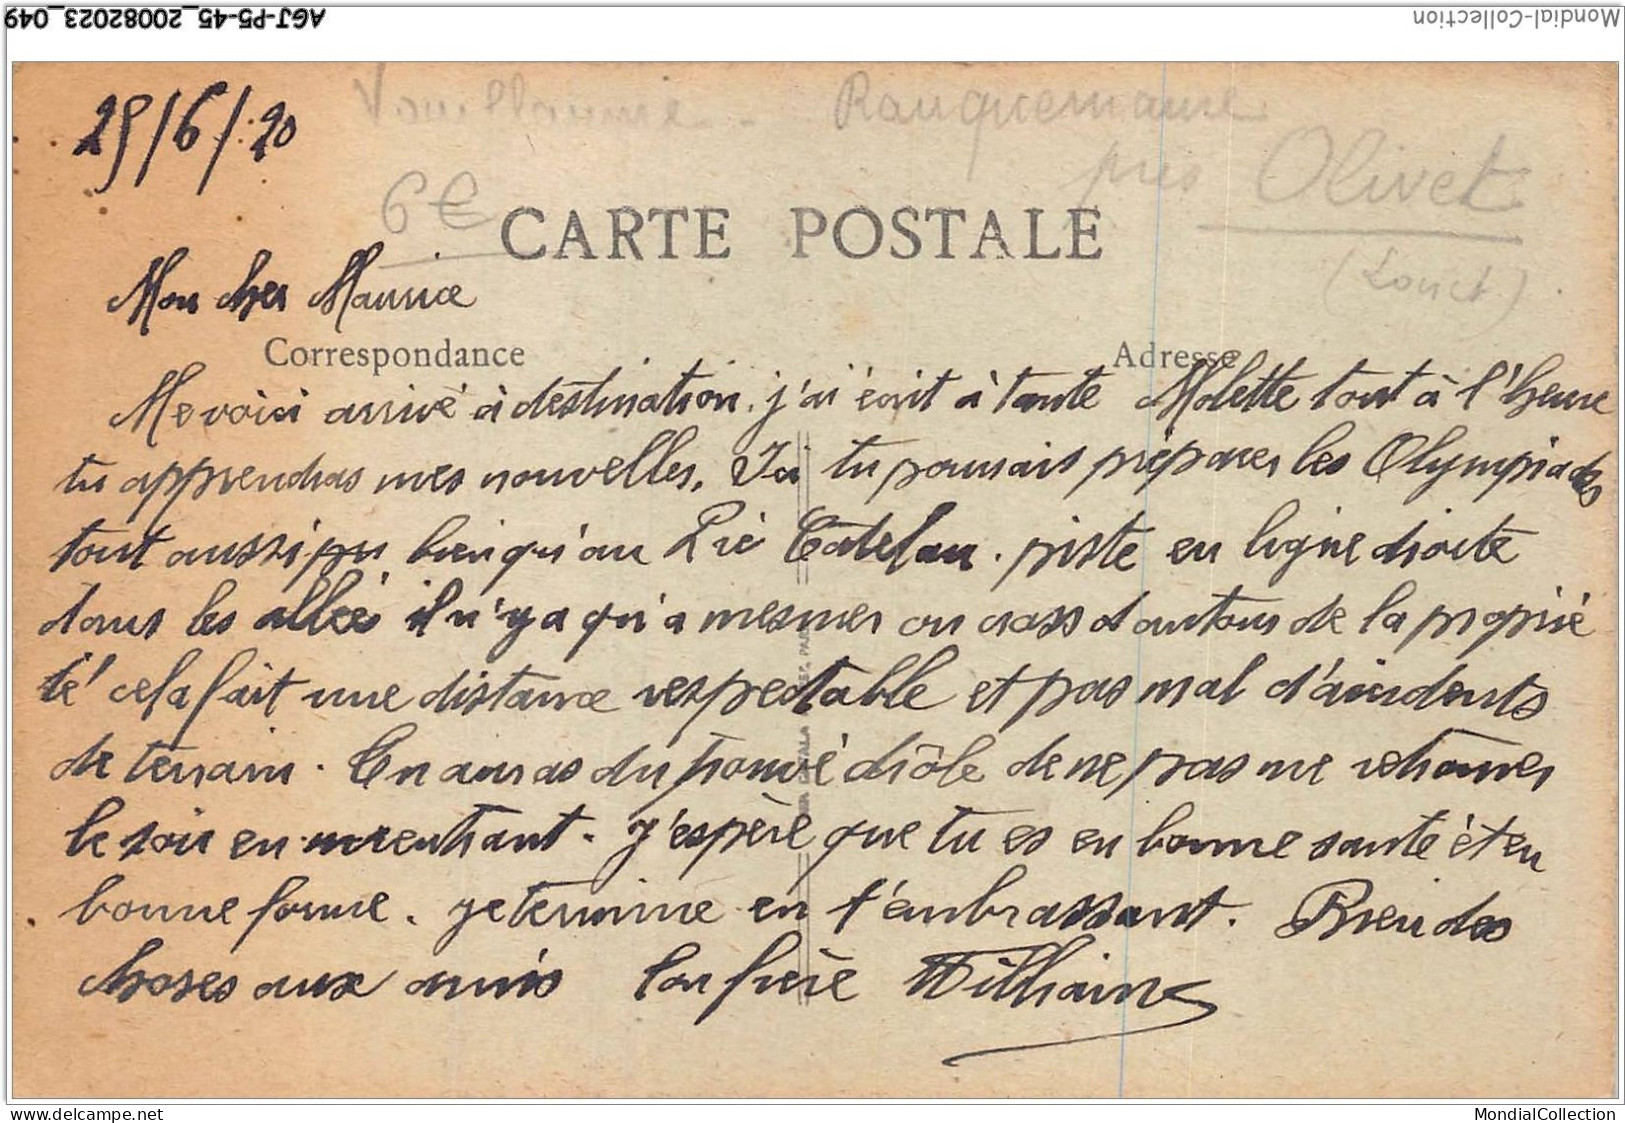 AGJ-P5-45_20082023_049
Mondial-Collection
25/6/20
6€
près Olivet
(Loiret)
CARTE POSTALE
Mon cher Maurice
Correspondance
Adresse
Me voici arrivé à destination. j'ai écrit à tante Molette tout à l'heure
tu apprendras mes nouvelles. Ici tu pourrais préparer les Olympiades
tout aussi pu bien qu'au Pré Catelan. piste en ligne droite
dans les allée il n'y a qu'a mesurer ou cross d autour de la proprié
té cela fait une distance respectable et pas mal d'accidents
de terrain. On auras du trouvé drôle de ne pas me retrouver
le soir en rentrant. J'espère que tu es en bonne santé et en
bonne forme. Je termine en t'embrassant. Bien des
choses aux amis Ton frère William
delcampe.net
MondialCollection